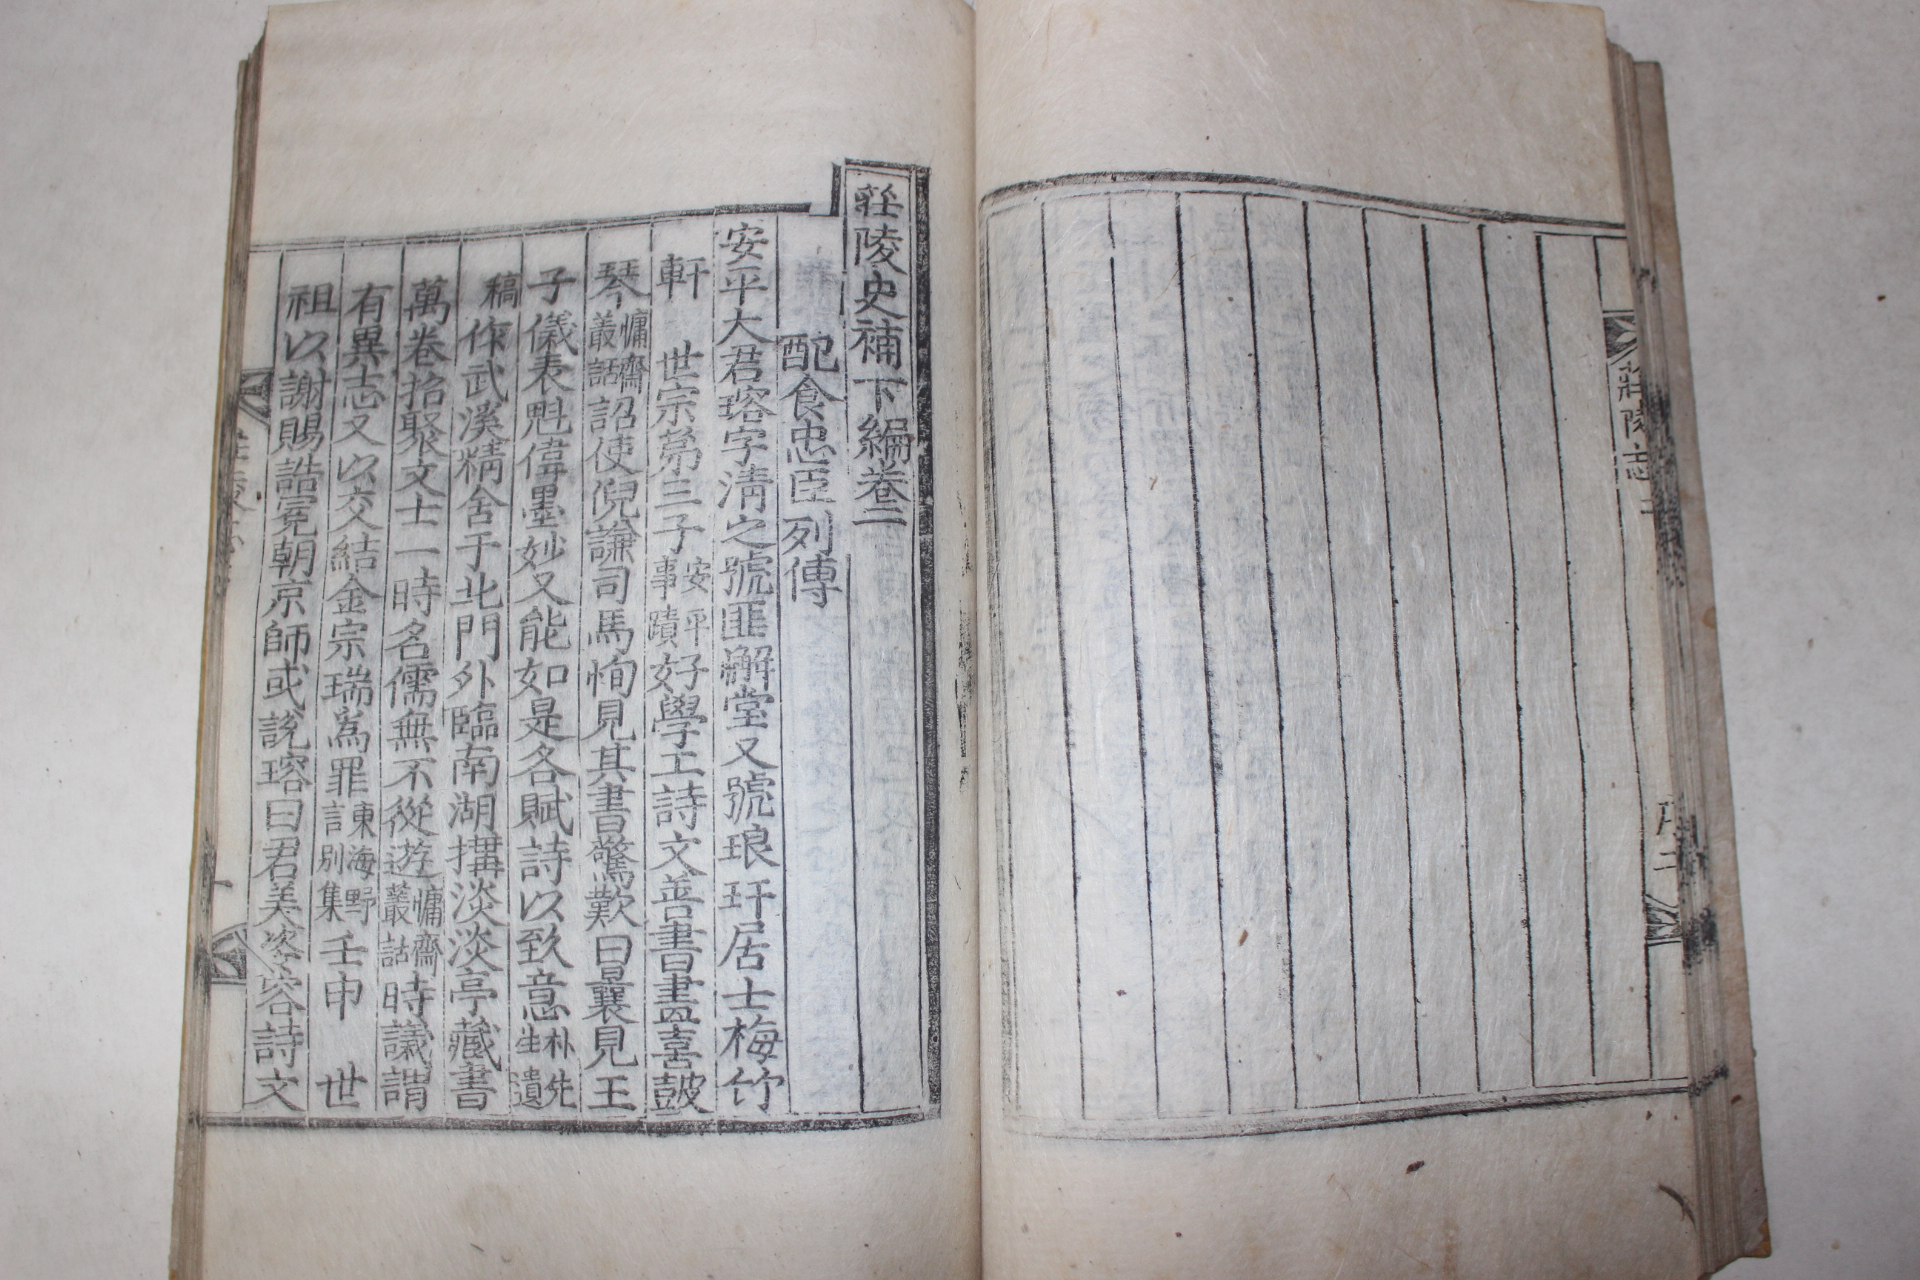 莊陵志二
序二
莊陵史補下編卷二
配食忠臣列傳
安平大君瑢字清之號匪懈堂又號琅玕居士梅竹
軒 世宗第三子安平事蹟好學工詩文善書畫喜鼓
琴慵齋叢話詔使倪謙司馬恂見其書驚歎曰曩見王
子儀表魁偉墨妙又能如是各賦詩以致意朴先生遺
稿作武溪精舍于北門外臨南湖搆淡淡亭藏書
萬卷招聚文士一時名儒無不從遊慵齋叢話時議謂
有異志又以交結金宗瑞爲罪東海野言別集壬申 世
祖以謝賜誥冕朝京師或說瑢曰君美姿容詩文